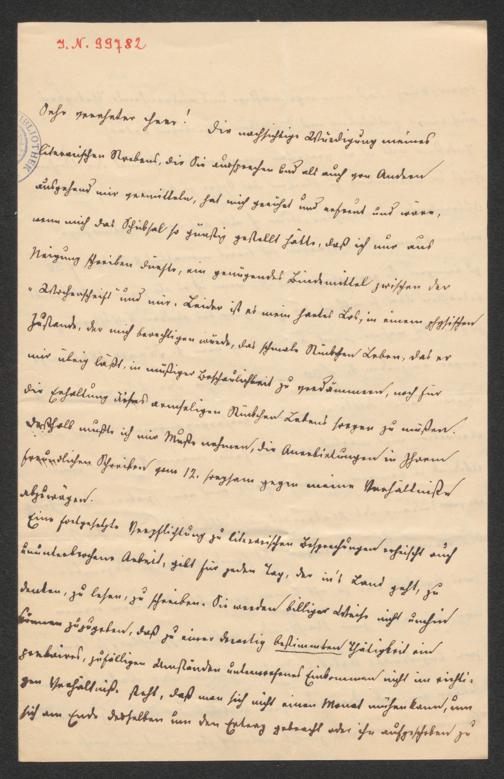 I. N. 99782
BIBLIOTHEK
Sehr verehrter Herr! Die nachsichtige Würdigung meines
literarischen Strebens, die Sie aussprechen und als auch von Andern
ausgehend mir vermitteln, hat mich gerührt und erfreut und wäre,
wenn mich das Schicksal so günstig gestellt hätte, daß ich nur aus
Neigung schreiben dürfte, ein genügendes Bindemittel zwischen der
"Wochenschrift" und mir. Leider ist es mein hartes Los, in einem physischen
Zustande, der mich berechtigen würde, das schmale Stückchen Leben, das er
mir übrig läßt, in müßiger Beschaulichkeit zu verdämmern, noch für
die Erhaltung dieses armseligen Stückchen Lebens sorgen zu müßen.
Deßhalb mußte ich mir Muße nehmen, die Anerbietungen in Ihrem
freundlichen Schreiben vom 12. sorgsam gegen meine Verhältniße
abzuwägen.
Eine fortgesetzte Verpflichtung zu literarischen Besprechungen erheischt auch
ununterbrochene Arbeit, gibt für jeden Tag, der in's Land geht, zu
denken, zu lesen, zu schreiben. Sie werden billiger Weise nicht umhin
können zuzugeben, daß zu einer derartig bestimmten Thätigkeit ein
prekäres, zufälligen Umständen unterworfenes Einkommen nicht im richti-
gen Verhältniß steht, daß man sich nicht einen Monat mühen kann, um
sich am Ende desselben um den Ertrag gebracht oder ihn aufgeschoben zu